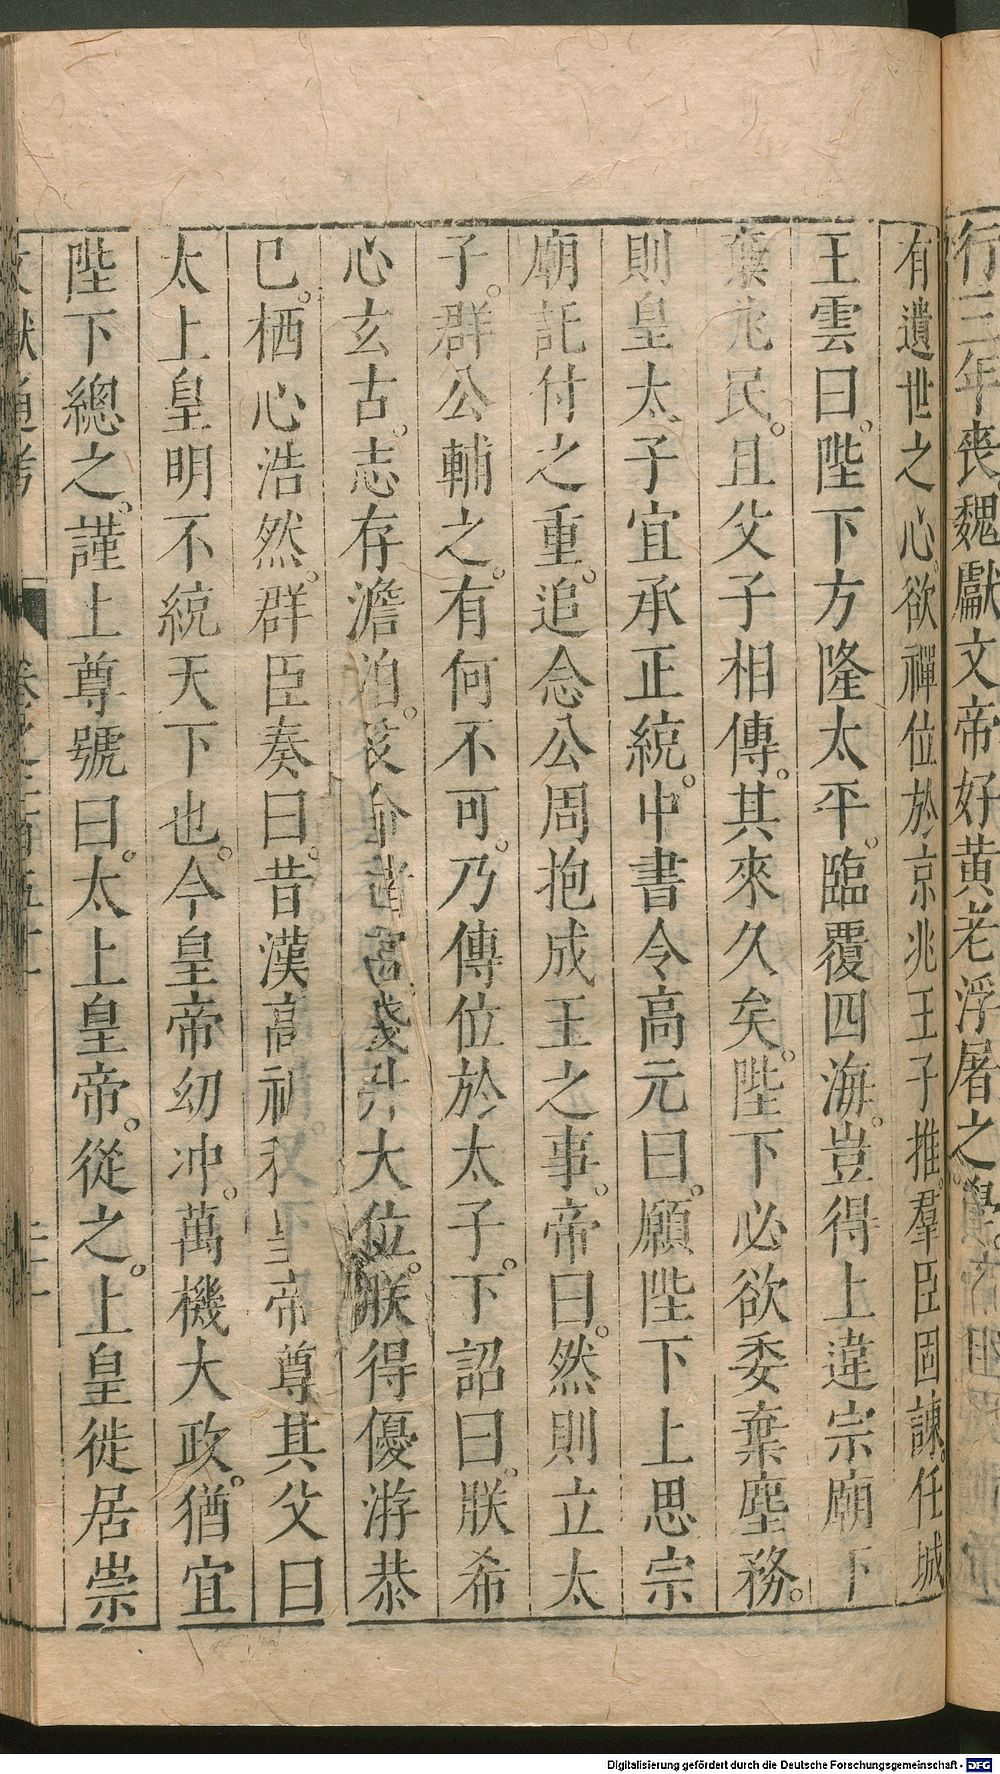 行三年喪魏獻文帝好黃老浮屠之學
有遺世之心欲禪位於京兆王子推。羣臣固諫。任城
王雲曰。陛下方隆太平。臨覆四海。豈得上違宗廟下
棄兆民。且父子相傳。其來久矣。陛下必欲委棄塵務。
則皇太子宜承正統。中書令高元曰。願陛下上思宗
廟託付之重。追念公周抱成王之事。帝曰。然則立太
子。群公輔之。有何不可。乃傳位於太子。下詔曰。朕希
心玄古。志存澹泊。爰命儲宮踐升大位。朕得優游恭
已。栖心浩然。群臣奏曰。昔漢高祖稱皇帝尊其父曰
太上皇明不統天下也。今皇帝幼冲。萬機大政。猶宜
陛下總之。謹上尊號曰。太上皇帝。從之。上皇徙居崇
文獻通考 卷之二百五十一 二十一
Digitalisierung gefördert durch die Deutsche Forschungsgemeinschaft - DFG